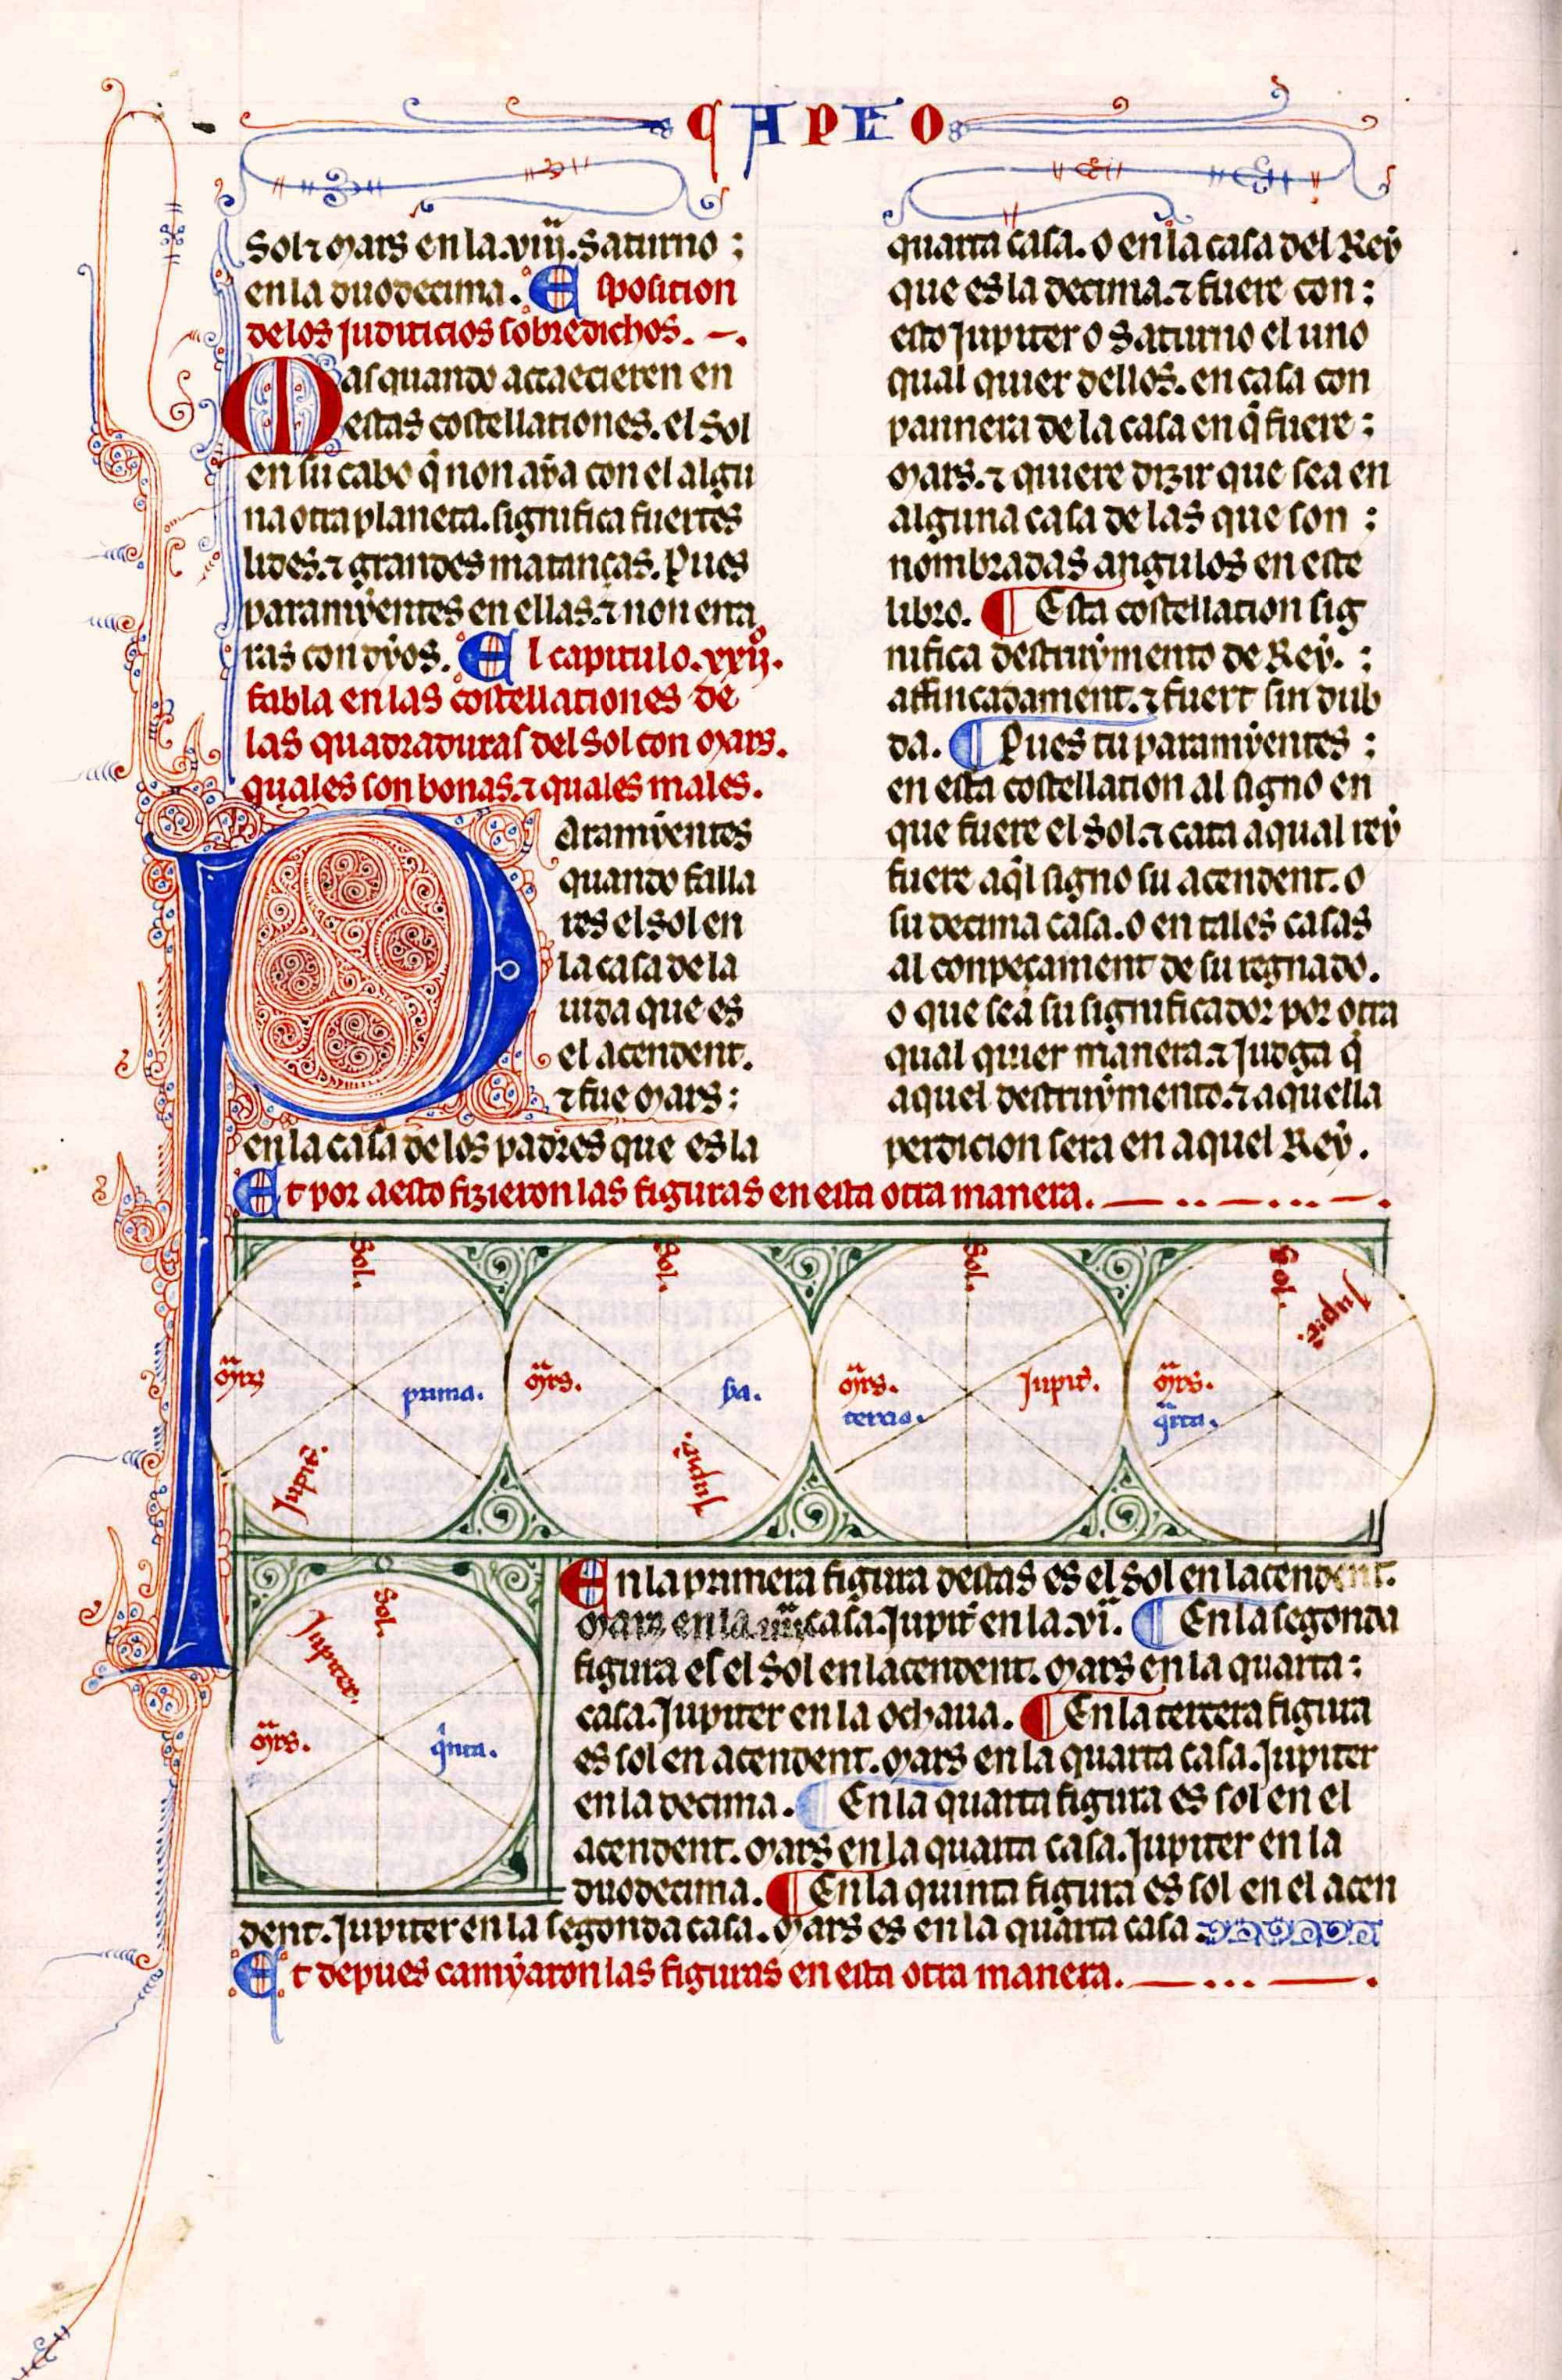 CAPLO
Sol ⁊ Mars en la .viiij. Saturno :
en la duodecima. Esposicion
de los judiicios sobredichos. —.
Mas quando acaecieren en
estas costellationes. el Sol
en su cabo q̃ non aya con el algu
na otra planeta. significa fuertes
lides. ⁊ grandes matanças. Pues
paramyentes en ellas. ⁊ non erra
ras con dyos. El capitulo .xxijº.
fabla en las costellationes de
las quadraduras del Sol con Mars.
quales son bonas. ⁊ quales males.
Paramyentes
quando falla
res el Sol en
la casa de la
uida que es
el acendent.
⁊ fue Mars :
en la casa de los padres que es la
quarta casa. o en la casa del Rey
que es la decima. ⁊ fuere con :
esto Jupiter o Saturno el uno
qual quier dellos. en casa con
pannera de la casa en q̃ fuere :
Mars. ⁊ quiere dizir que sea en
alguna casa de las que son :
nombradas angulos en este
libro. ¶ Esta costellation sig
nifica destruymento de Rey. :
affincadament. ⁊ fuert sin dub
da. ¶ Pues tu paramyentes :
en esta costellation al signo en
que fuere el Sol. ⁊ cata a qual rey
fuere aq̃l signo su acendent. o
su decima casa. o en tales casas
al conpeçament de su regnado.
o que sea su significador por otra
qual quier manera. ⁊ Judga q̃
aquel destruymento. ⁊ aquella
perdicion sera en aquel Rey.
Et por aesto fizieron las figuras en esta otra manera. — .. — ... —.
Sol.
Mrs
prima.
Jupit̃.
Sol.
Mrs.
ija.
Jupit̃.
Sol.
Mrs.
tercia.
Jupit̃.
Sol.
Jupit̃.
Mrs.
q̃rta.
En la primera figura destas es el Sol en lacendent.
Mars en la iiijª casa. Jupit̃ en la .viª. ¶ En la segonda
figura es el Sol en lacendent. Mars en la quarta :
casa. Jupiter en la ochaua. ¶ En la tercera figura
es sol en acendent. Mars en la quarta casa. Jupiter
en la decima. ¶ En la quarta figura es sol en el
acendent. Mars en la quarta casa. Jupiter en la
duodecima. ¶ En la quinta figura es sol en el acen
dent. Jupiter en la segonda casa. Mars es en la quarta casa.
Sol.
Jupiter.
Mrs.
q̃nta.
Et depues camyaron las figuras en esta otra manera. — ... — .